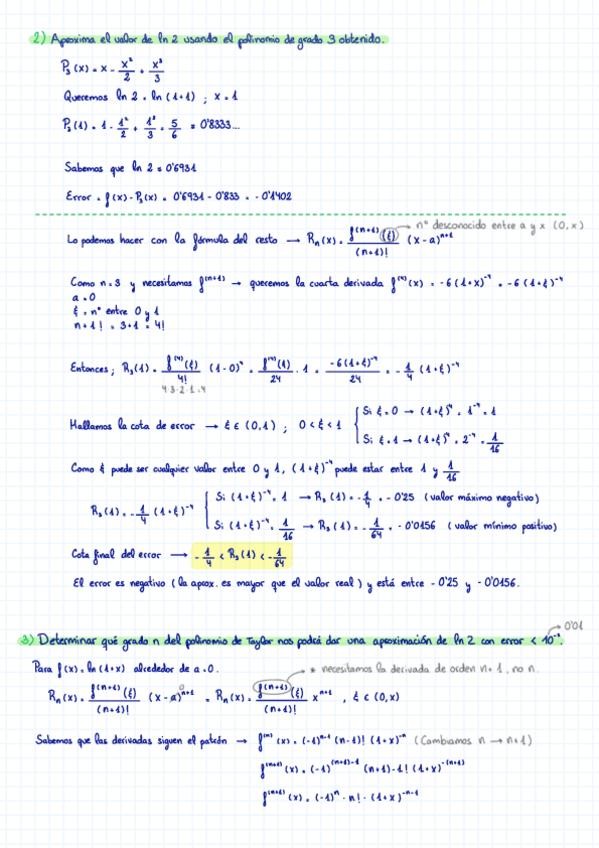 2) Aproxima el valor de ln 2 usando el polinomio de grado 3 obtenido.
P₃(x) = x - x²/2 + x³/3
Queremos ln 2 = ln (1+1) ; x = 1
P₃(1) = 1 - 1²/2 + 1³/3 = 5/6 = 0'8333...
Sabemos que ln 2 = 0'6931
Error = f(x) - P₃(x) = 0'6931 - 0'833 = -0'1402
Lo podemos hacer con la fórmula del resto → Rₙ(x) = f⁽ⁿ⁺¹⁾(ξ)/(n+1)! (x-a)ⁿ⁺¹ → nº desconocido entre a y x (0,x)
Como n=3 y necesitamos f⁽ⁿ⁺¹⁾ → queremos la cuarta derivada f⁽⁴⁾(x) = -6(1+x)⁻⁴ = -6(1+ξ)⁻⁴
a = 0
ξ = nº entre 0 y 1
n+1! = 3+1 = 4!
Entonces; R₃(1) = f⁽⁴⁾(ξ)/4! (1-0)⁴ = f⁽⁴⁾(1)/24 · 1 = -6(1+ξ)⁻⁴/24 = -1/4 (1+ξ)⁻⁴
4·3·2·1=4
Hallamos la cota de error → ξ ∈ (0,1) ; 0 < ξ < 1
Si ξ = 0 → (1+ξ)⁴ = 1⁻⁴ = 1
Si ξ = 1 → (1+ξ)⁴ = 2⁻⁴ = 1/16
Como ξ puede ser cualquier valor entre 0 y 1, (1+ξ)⁻⁴ puede estar entre 1 y 1/16
R₃(1) = -1/4 (1+ξ)⁻⁴
Si (1+ξ)⁻⁴ = 1 → R₃(1) = -1/4 = -0'25 (valor máximo negativo)
Si (1+ξ)⁻⁴ = 1/16 → R₃(1) = -1/64 = -0'0156 (valor mínimo positivo)
Cota final del error → -1/4 < R₃(1) < -1/64
El error es negativo (la aprox. es mayor que el valor real) y está entre -0'25 y -0'0156.
3) Determinar qué grado n del polinomio de Taylor nos podrá dar una aproximación de ln 2 con error < 10⁻². → 0'01
Para f(x) = ln (1+x) alrededor de a = 0.
* necesitamos la derivada de orden n+1, no n.
Rₙ(x) = f⁽ⁿ⁺¹⁾(ξ)/(n+1)! (x-a)ⁿ⁺¹ = Rₙ(x) = f⁽ⁿ⁺¹⁾(ξ)/(n+1)! xⁿ⁺¹ , ξ ∈ (0,x)
Sabemos que las derivadas siguen el patrón → f⁽ⁿ⁾(x) = (-1)ⁿ⁻¹ (n-1)! (1+x)⁻ⁿ (Cambiamos n → n+1)
f⁽ⁿ⁺¹⁾(x) = (-1)⁽ⁿ⁺¹⁾⁻¹ (n+1)-1! (1+x)⁻⁽ⁿ⁺¹⁾
f⁽ⁿ⁺¹⁾(x) = (-1)ⁿ · n! · (1+x)⁻ⁿ⁻¹